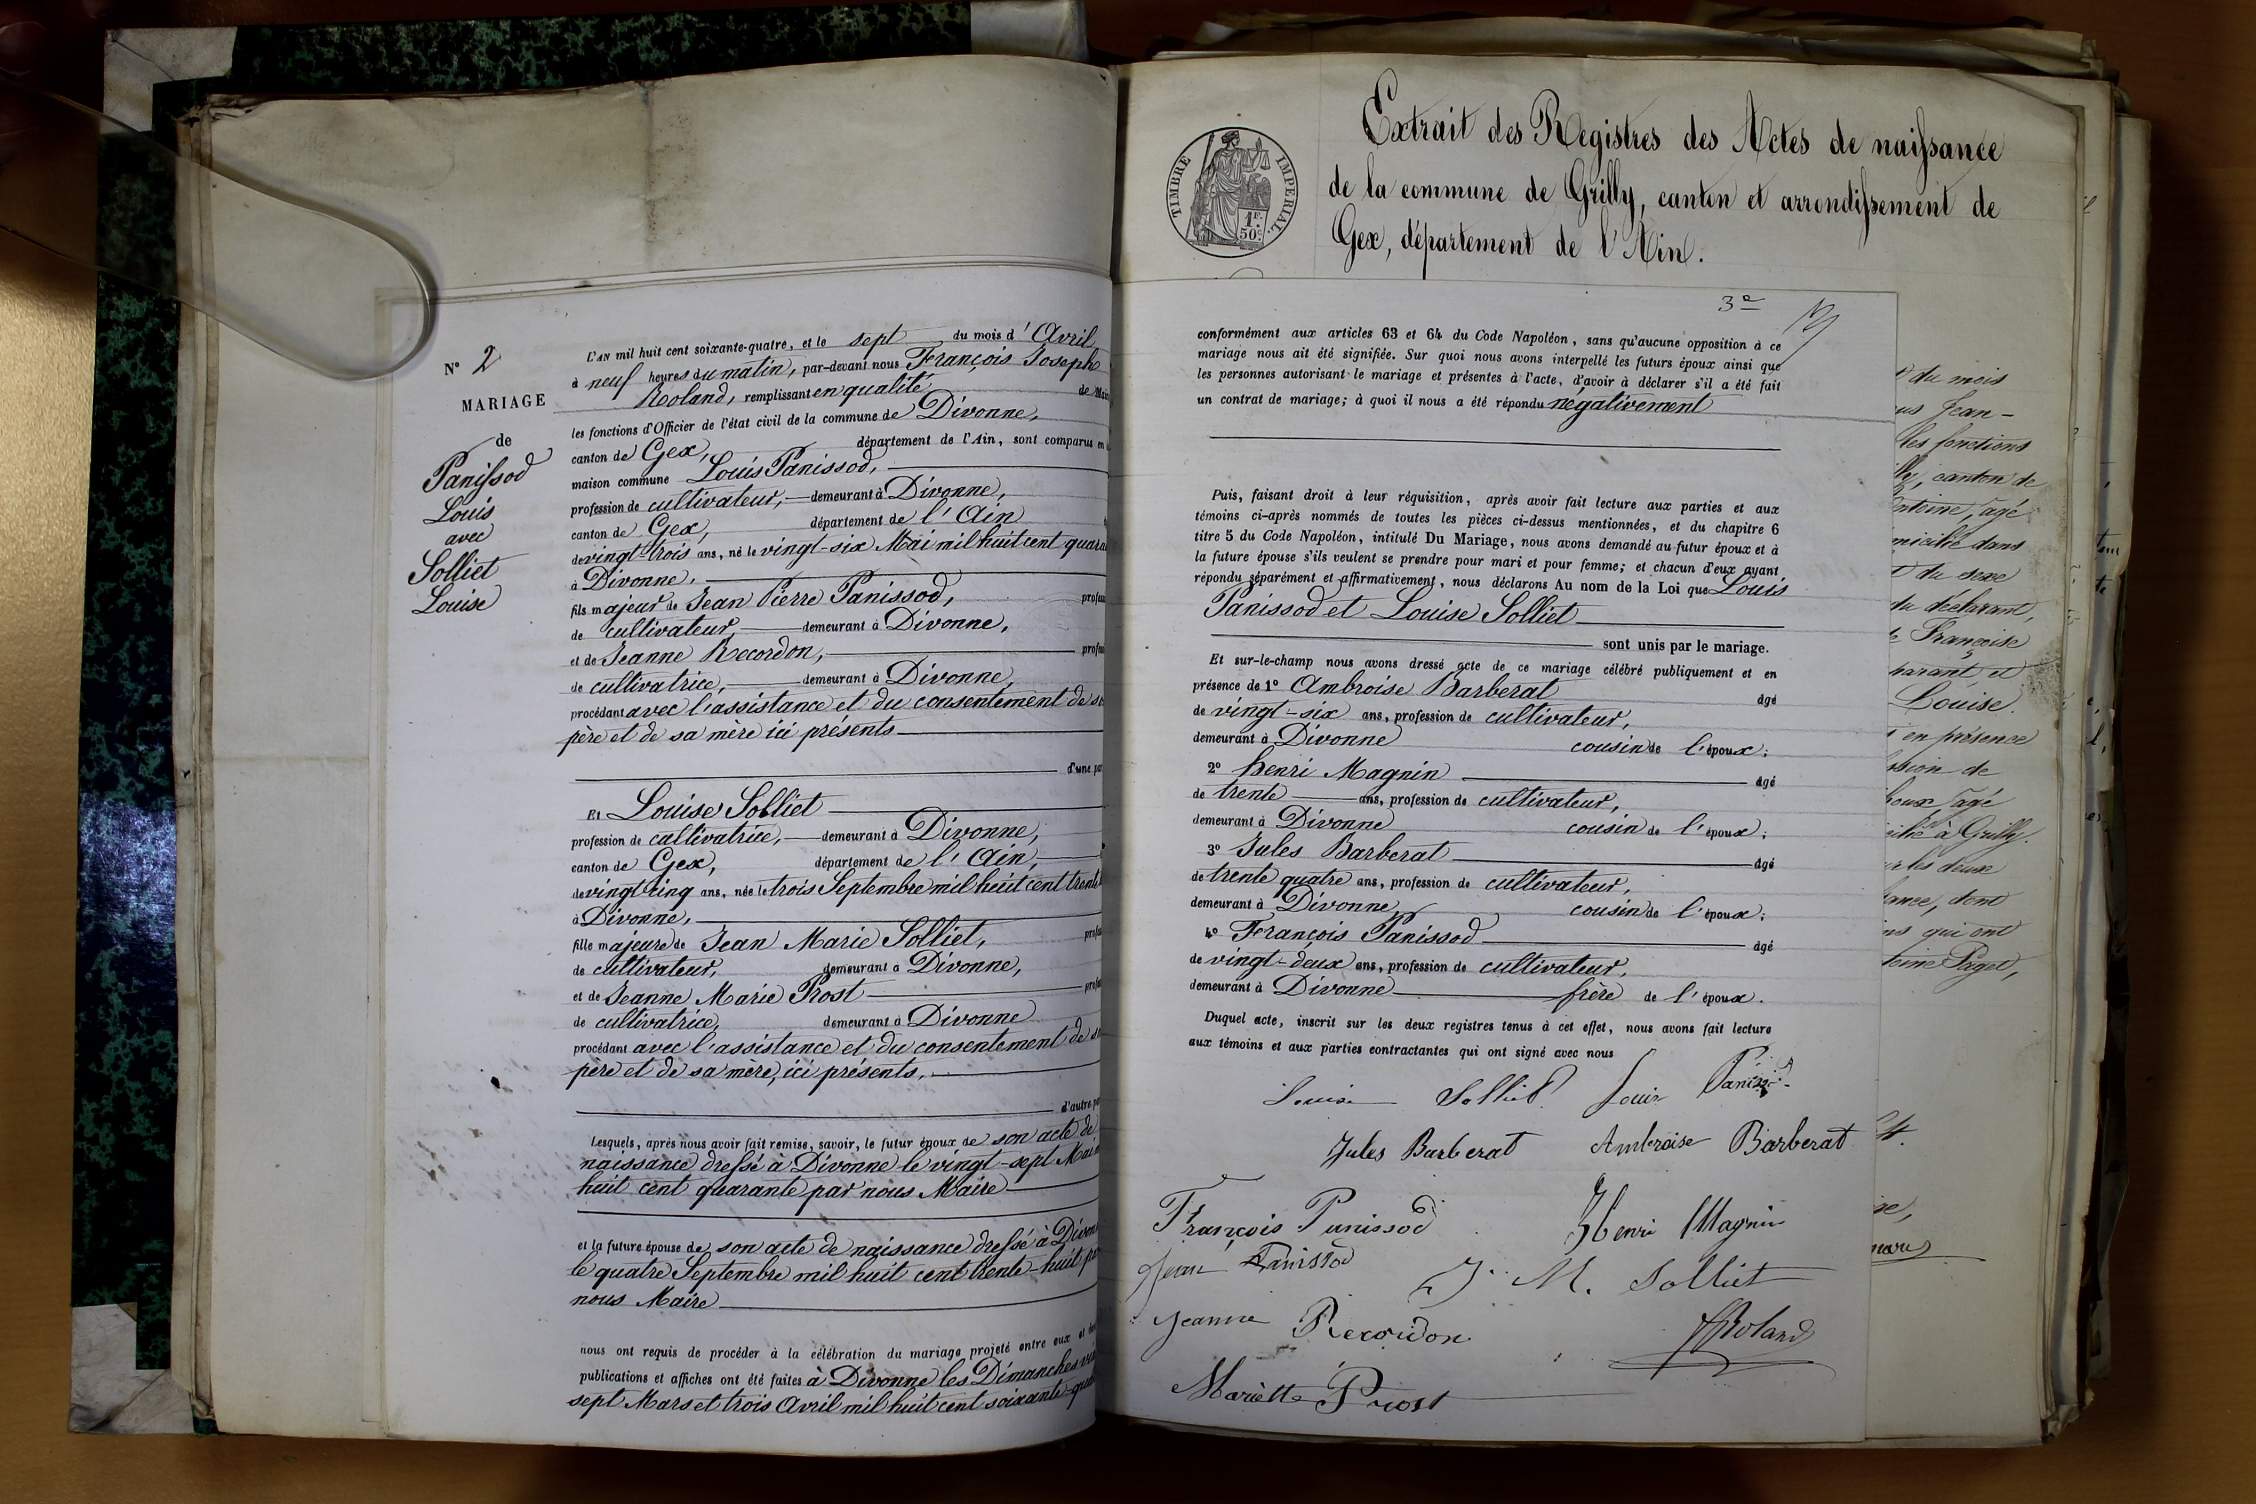 N° 2
MARIAGE
de
Panissod
Louis
avec
Solliet
Louise
L'AN mil huit cent soixante-quatre, et le sept du mois d'Avril
à neuf heures du matin, par-devant nous François Joseph
Roland, remplissant en qualité de Mair
les fonctions d'Officier de l'état civil de la commune de Divonne,
canton de Gex, département de l'Ain, sont comparus en
maison commune Louis Panissod,
profession de cultivateur, demeurant à Divonne,
canton de Gex, département de l'Ain
de vingt trois ans, né le vingt-six Mai mil huit cent quara
à Divonne,
fils majeur de Jean Pierre Panissod, profes
de cultivateur, demeurant à Divonne,
et de Jeanne Recordon, profes
de cultivatrice, demeurant à Divonne,
procédant avec l'assistance et du consentement de s
père et de sa mère ici présents
d'une par
Et Louise Solliet
profession de cultivatrice, demeurant à Divonne,
canton de Gex, département de l'Ain,
de vingt cinq ans, née le trois Septembre mil huit cent trente
à Divonne,
fille majeure de Jean Marie Solliet, profes
de cultivateur, demeurant à Divonne,
et de Jeanne Marie Prost profes
de cultivatrice, demeurant à Divonne
procédant avec l'assistance et du consentement de s
père et de sa mère, ici présents,
d'autre par
Lesquels, après nous avoir fait remise, savoir, le futur époux de son acte de
naissance dressé à Divonne le vingt-sept Mai
huit cent quarante par nous Maire
et la future épouse de son acte de naissance dressé à Divon
le quatre Septembre mil huit cent trente-huit par
nous Maire
nous ont requis de procéder à la célébration du mariage projeté entre eux et
publications et affiches ont été faites à Divonne les Dimanches
sept Mars et trois Avril mil huit cent soixante-qua
Extrait des Registres des Actes de naissance
de la commune de Grilly, canton et arrondissement de
Gex, département de l'Ain.
TIMBRE IMPERIAL
1F. 50C.
3e
conformément aux articles 63 et 64 du Code Napoléon, sans qu'aucune opposition à ce
mariage nous ait été signifiée. Sur quoi nous avons interpellé les futurs époux ainsi que
les personnes autorisant le mariage et présentes à l'acte, d'avoir à déclarer s'il a été fait
un contrat de mariage; à quoi il nous a été répondu négativement
Puis, faisant droit à leur réquisition, après avoir fait lecture aux parties et aux
témoins ci-après nommés de toutes les pièces ci-dessus mentionnées, et du chapitre 6
titre 5 du Code Napoléon, intitulé Du Mariage, nous avons demandé au futur époux et à
la future épouse s'ils veulent se prendre pour mari et pour femme; et chacun d'eux ayant
répondu séparément et affirmativement, nous déclarons Au nom de la Loi que Louis
Panissod et Louise Solliet
sont unis par le mariage.
Et sur-le-champ nous avons dressé acte de ce mariage célébré publiquement et en
présence de 1° Ambroise Barberat âgé
de vingt-six ans, profession de cultivateur,
demeurant à Divonne cousin de l'époux;
2° Henri Magnin âgé
de trente ans, profession de cultivateur,
demeurant à Divonne cousin de l'époux;
3° Jules Barberat âgé
de trente quatre ans, profession de cultivateur,
demeurant à Divonne, cousin de l'époux;
4° François Panissod âgé
de vingt-deux ans, profession de cultivateur,
demeurant à Divonne frère de l'époux.
Duquel acte, inscrit sur les deux registres tenus à cet effet, nous avons fait lecture
aux témoins et aux parties contractantes qui ont signé avec nous
Louise Solliet Louis Paniss
Jules Barberat Ambroise Barberat
François Panissod Henri Magnin
Jean Panissod J. M. Solliet
Jeanne Recordon FRoland
Mariette Prost
du mois
us Jean-
les fonctions
canton de
ntoine, âgé
micilié dans
du sexe
du déclarant,
Françoise
parant et
Louise.
en présence
ssion de
âgé
cilié à Grilly.
les deux
sance, dont
ns qui ont
toine Paget,